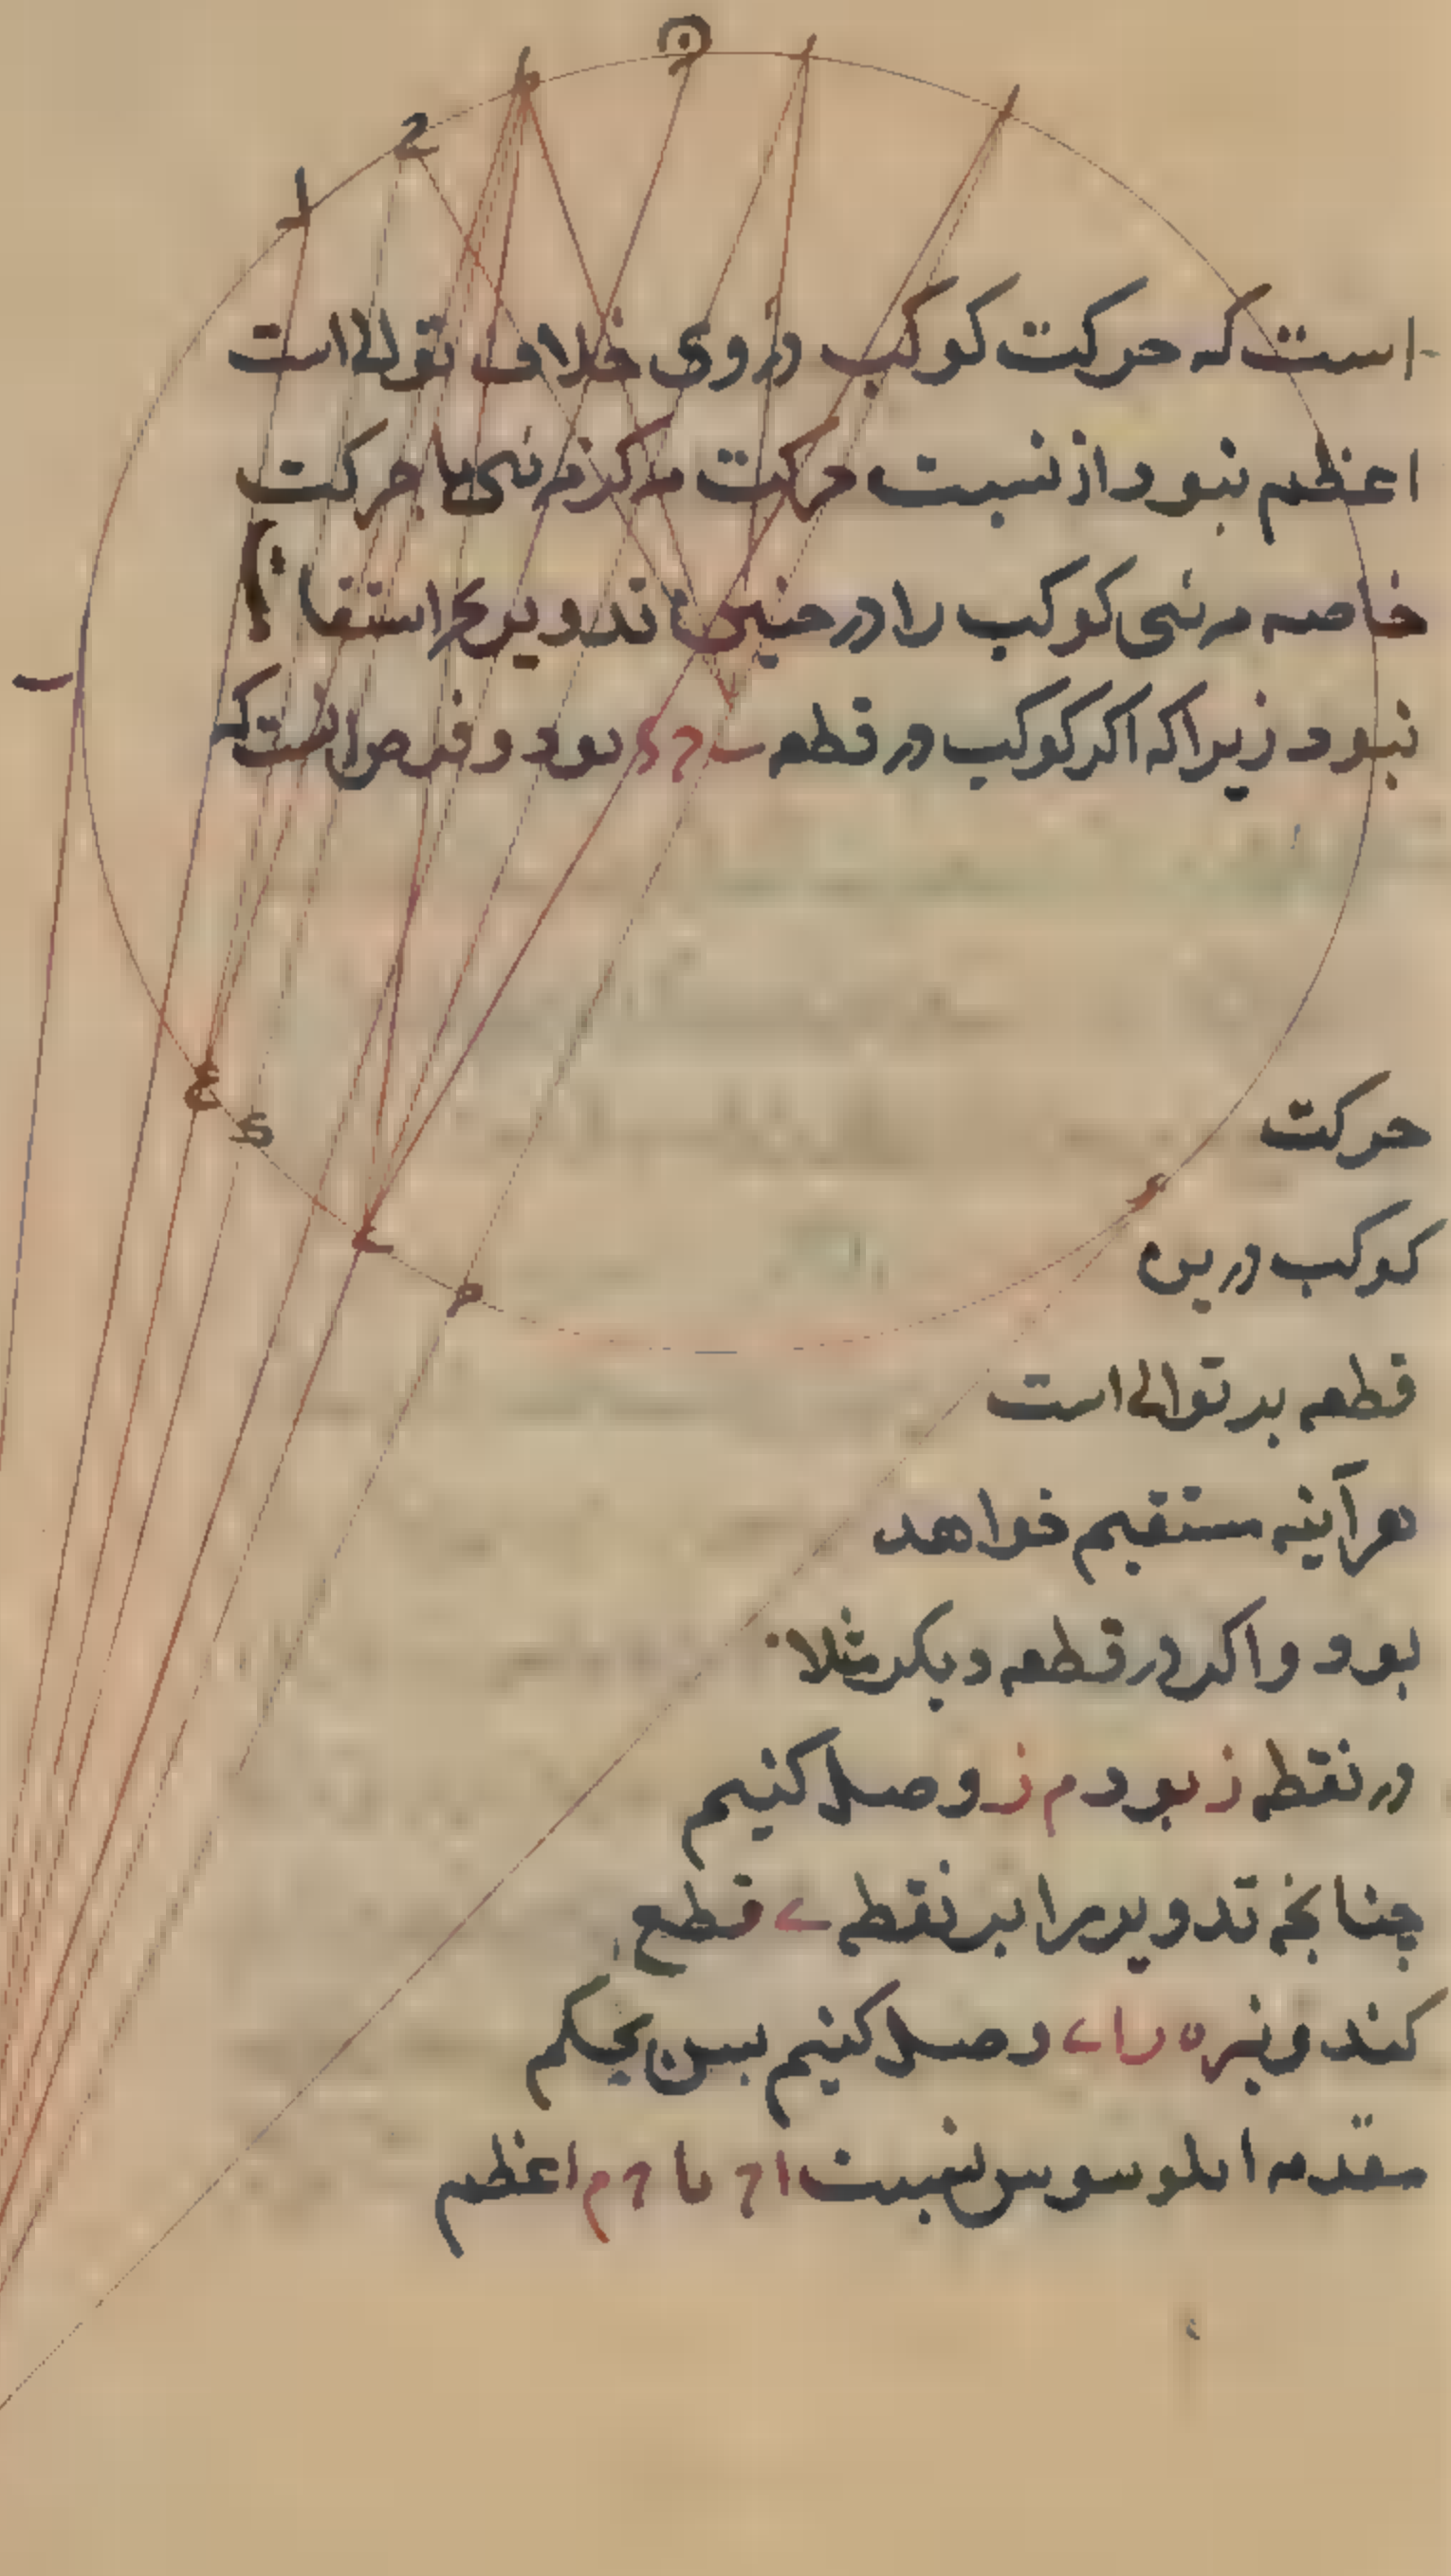 است که حرکت کوکب در وی خلاف توالی است
اعظم نبود از نسبت حرکت مرکز مرئی با حرکت
خاصه مرئی کوکب را در چنین تدویر بجز استقامت
نبود زیرا که اگر کوکب در قطعه ب ح د بود و فرض انست که
حرکت
کوکب درین
قطعه بر توالی است
هرآینه مستقیم خواهد
بود و اگر در قطعه دیگر مثلا
در نقطه ز بود م ز وصل کنیم
چنانچه تدویر را بر نقطه ی قطع
کند و نیز ه ر ا ی وصل کنیم پس بحکم
مقدمه ابلوسوس نسبت ا ح با ح م اعظم